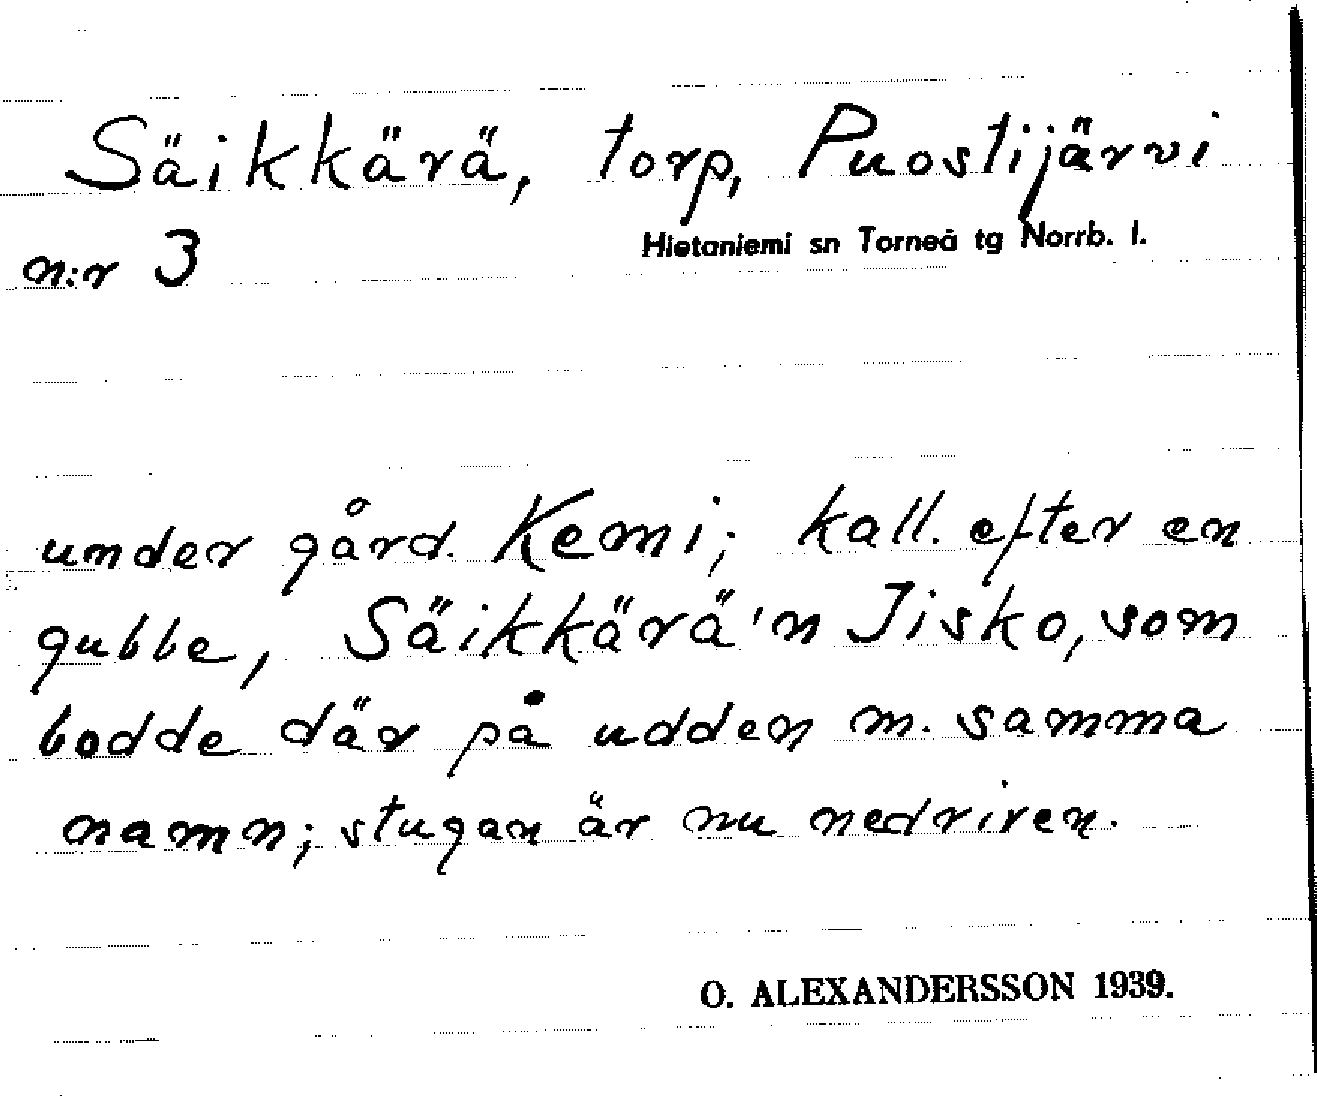 Säikkärä, torp, Puostijärvi
Hietaniemi sn Torneå tg Norrb. l.
n:r 3
under gård. Kemi; kall. efter en
gubbe, Säikkärä'n Jisko, som
bodde där på udden m. samma
namn; stugan är nu nedriven.
O. ALEXANDERSSON 1939.